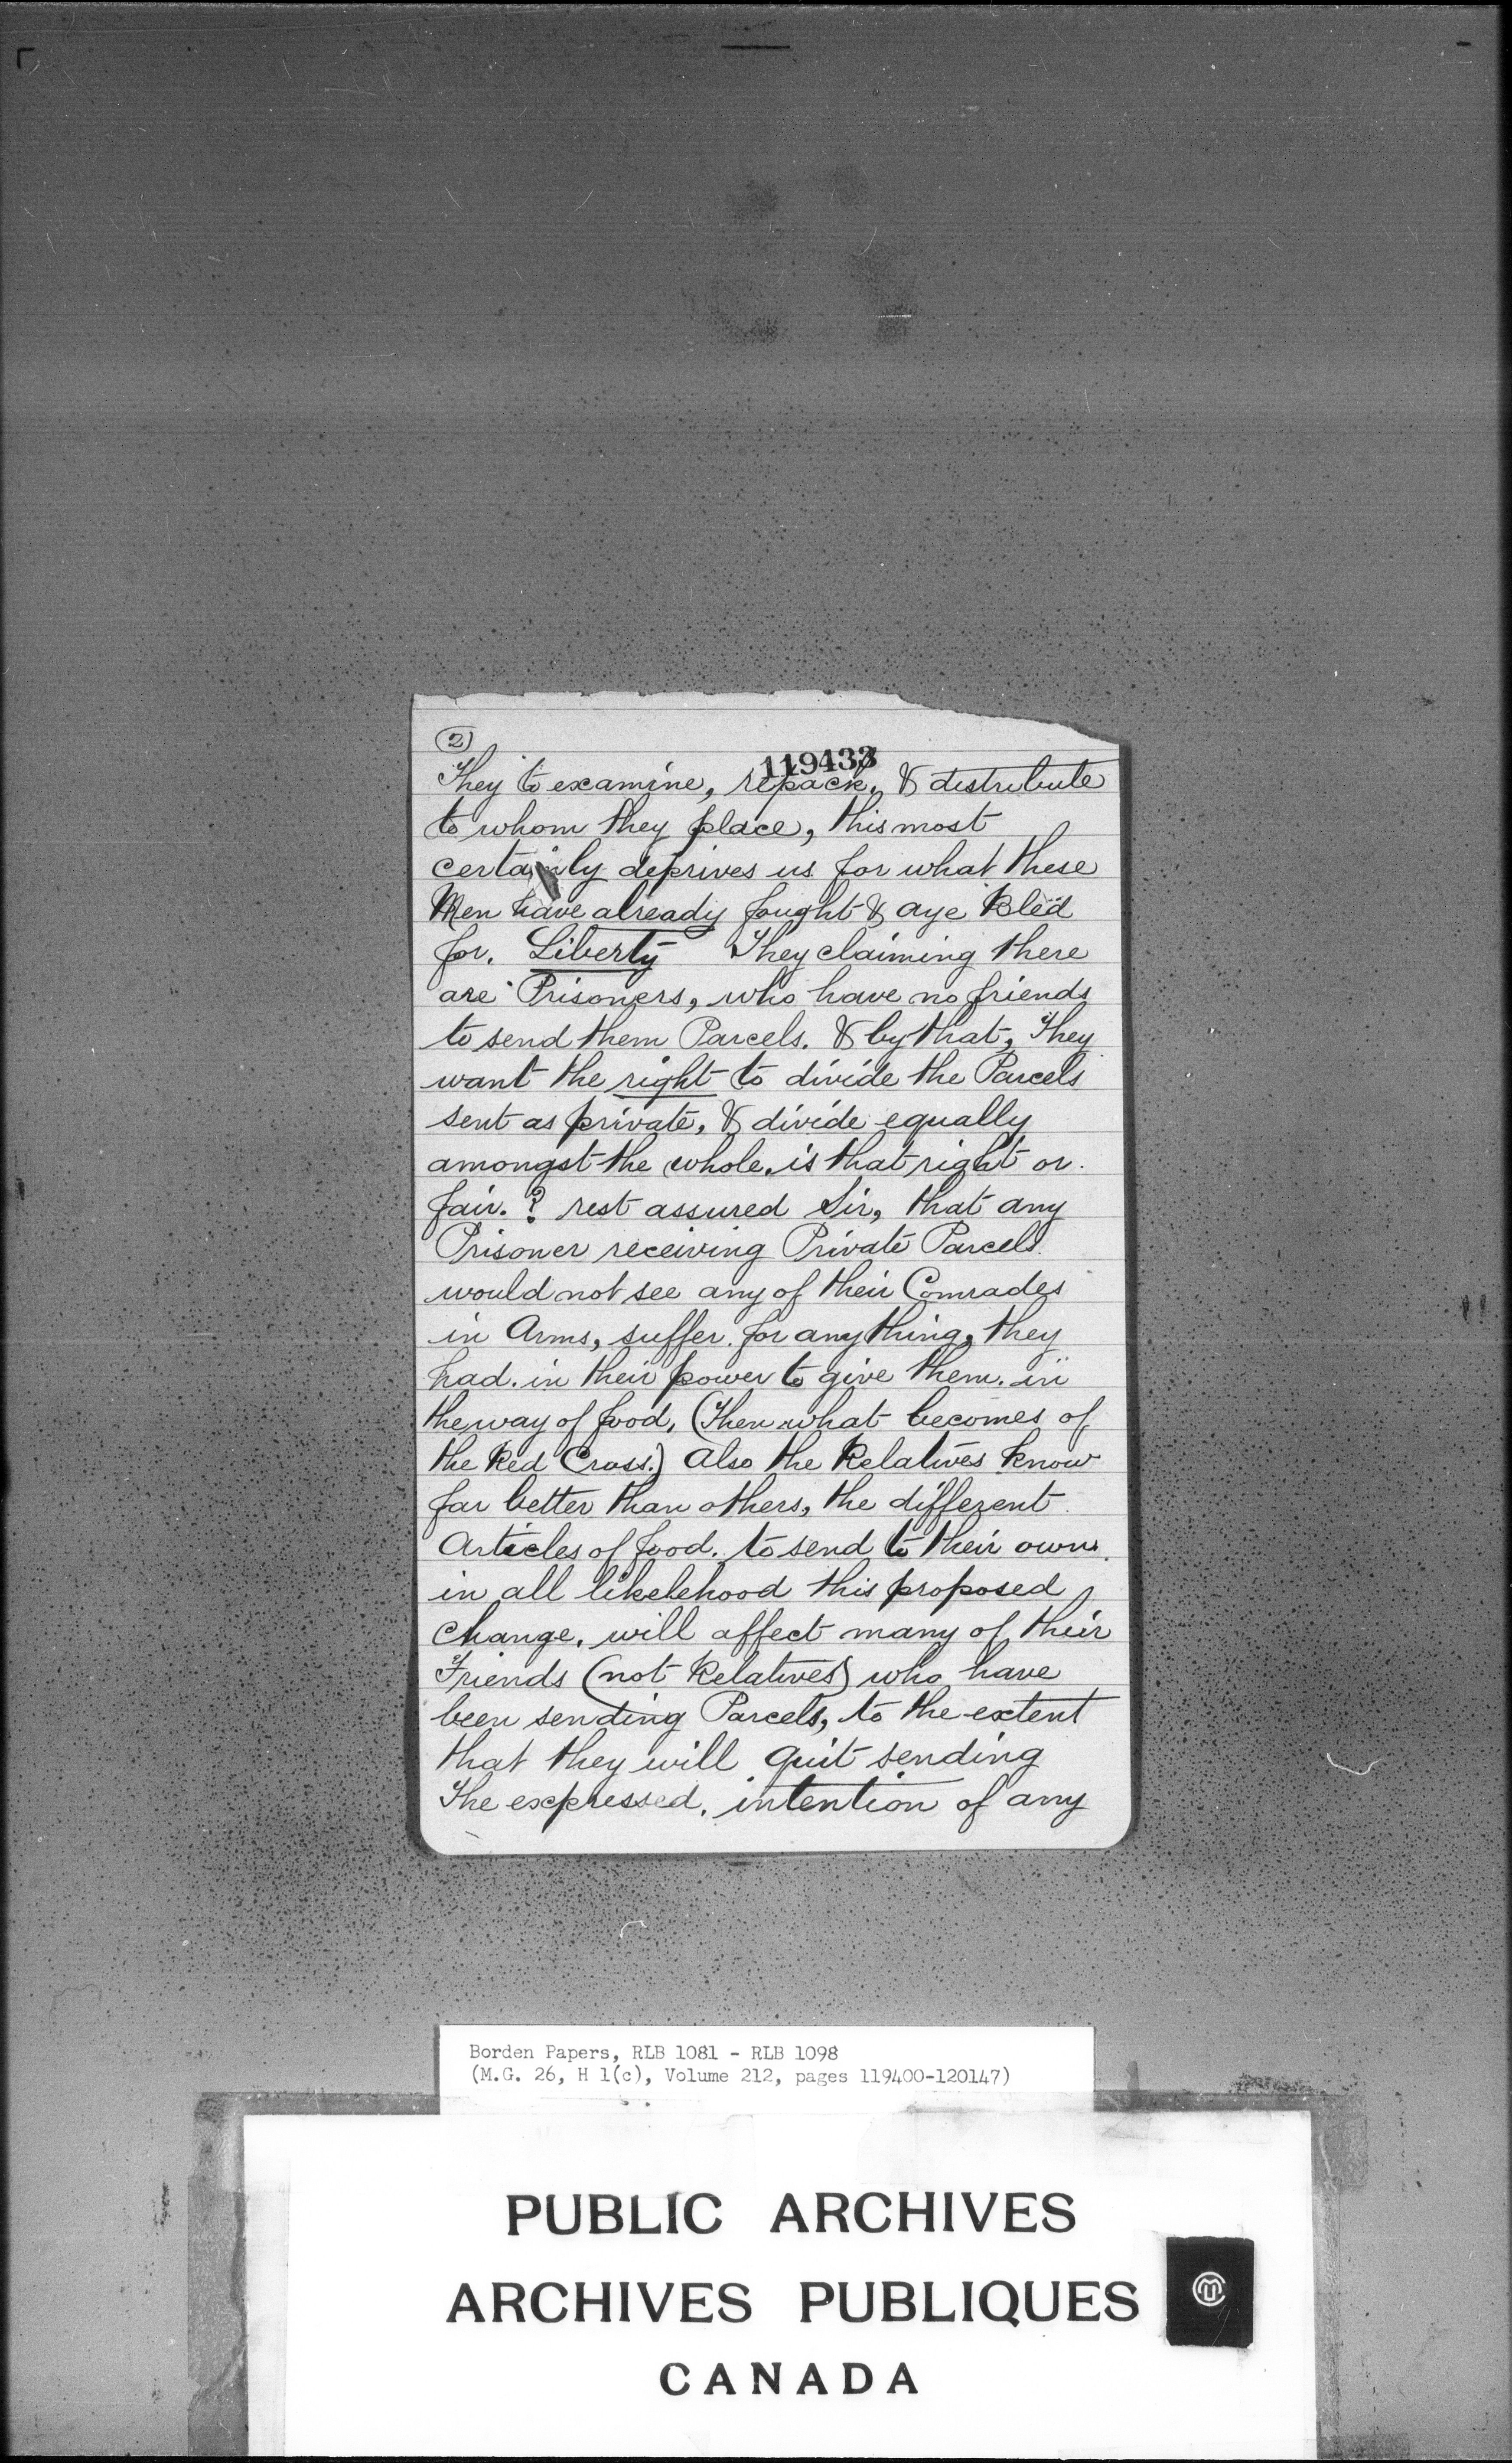 2
119433
They to examine, repack, & distribute
to whom they place, this most
certainly deprives us for what these
Men have already fought & aye Bled
for. Liberty They claiming there
are Prisoners, who have no friends
to send them Parcels. & by that, They
want the right to divide the Parcels
sent as private, & divide equally
amongst the whole. is that right or.
fair. ? rest assured Sir, that any
Prisoner receiving Private Parcels.
would not see any of their Comrades
in Arms, suffer. for any thing, they
had. in their power to give them. in
the way of food, (Then what becomes of
the Red Cross.) Also the Relatives know
far better than others, the different
Articles of food. to send to their own.
in all likelehood this proposed
change. will affect many of their
Friends (not Relatives) who have
been sending Parcels, to the extent
that they will quit sending
The expressed. intention of any
Borden Papers, RLB 1081 - RLB 1098
(M.G. 26, H 1(c), Volume 212, pages 119400-120147)
PUBLIC ARCHIVES
ARCHIVES PUBLIQUES
CANADA